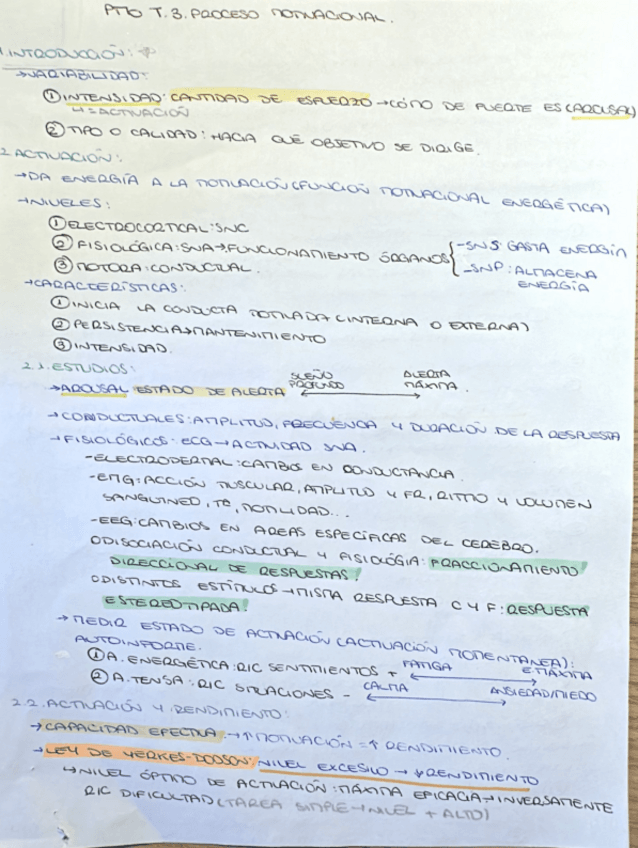 PTO T.3. PROCESO MOTIVACIONAL.
1. INTRODUCCIÓN:
→ VARIABILIDAD:
① INTENSIDAD: CANTIDAD DE ESFUERZO → CÓMO DE FUERTE ES (AROUSAL)
↳ = ACTIVACIÓN
② TIPO O CALIDAD: HACIA QUÉ OBJETIVO SE DIRIGE.
2. ACTIVACIÓN:
→ DA ENERGÍA A LA MOTIVACIÓN (FUNCIÓN MOTIVACIONAL ENERGÉTICA)
→ NIVELES:
① ELECTROCORTICAL: SNC
② FISIOLÓGICA: SNA → FUNCIONAMIENTO ÓRGANOS { - SNS: GASTA ENERGÍA
- SNP: ALMACENA ENERGÍA
③ MOTORA: CONDUCTUAL.
→ CARACTERÍSTICAS:
① INICIA LA CONDUCTA MOTIVADA (INTERNA O EXTERNA)
② PERSISTENCIA → MANTENIMIENTO
③ INTENSIDAD.
2.1. ESTUDIOS:
→ AROUSAL ESTADO DE ALERTA SUEÑO PROFUNDO ↔ ALERTA MÁXIMA.
→ CONDUCTUALES: AMPLITUD, FRECUENCIA Y DURACIÓN DE LA RESPUESTA
→ FISIOLÓGICOS: ECG → ACTIVIDAD SNA.
- ELECTRODERMAL: CAMBIOS EN CONDUCTANCIA.
- EMG: ACCIÓN MUSCULAR, AMPLITUD Y FR, RITMO Y VOLUMEN
SANGUINEO, Tª, MOTILIDAD...
- EEG: CAMBIOS EN AREAS ESPECÍFICAS DEL CEREBRO.
○ DISOCIACIÓN CONDUCTUAL Y FISIOLÓGIA: FRACCIONAMIENTO
DIRECCIONAL DE RESPUESTAS!
○ DISTINTOS ESTÍMULOS → MISMA RESPUESTA C Y F: RESPUESTA
ESTEREOTIPADA!
→ MEDIR ESTADO DE ACTIVACIÓN (ACTIVACIÓN MOMENTANEA):
AUTOINFORME.
① A. ENERGÉTICA: R/C SENTIMIENTOS + FATIGA ↔ E MÁXIMA
② A. TENSA: R/C SITUACIONES - CALMA ↔ ANSIEDAD/MIEDO
2.2. ACTIVACIÓN Y RENDIMIENTO:
→ CAPACIDAD EFECTIVA → ↑ MOTIVACIÓN = ↑ RENDIMIENTO.
→ LEY DE YERKES-DODSON: NIVEL EXCESIVO → ↓ RENDIMIENTO
↳ NIVEL ÓPTIMO DE ACTIVACIÓN: MÁXIMA EFICACIA → INVERSAMENTE
R/C DIFICULTAD (TAREA SIMPLE → NIVEL + ALTO)